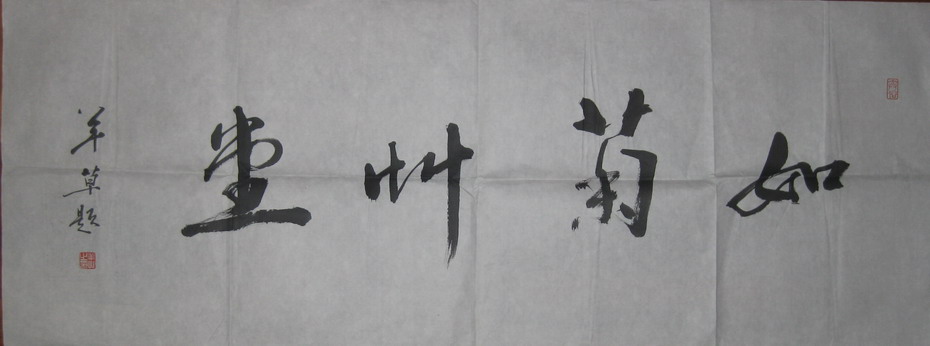 如菊艸堂
羊草题